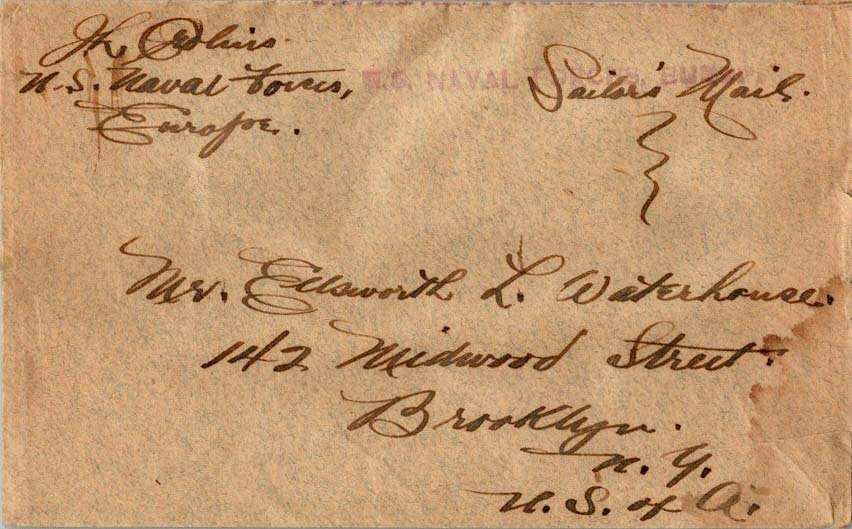 U.S. Naval Forces,
Europe.
U.S. NAVAL FORCES,
Sailor's Mail.
Mr. Ellsworth L. Waterhouse.
142 Midwood Street.
Brooklyn.
N. Y.
U. S. of A.